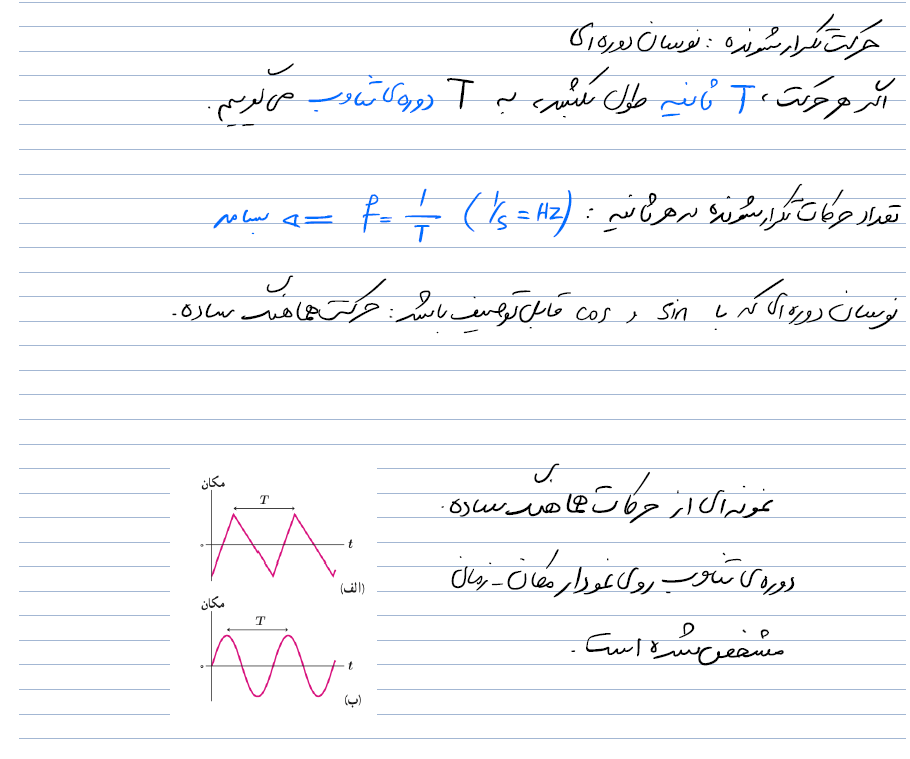 حرکت تکرار شونده : نوسان دوره‌ای
اگر هر حرکت، T ثانیه طول بکشد، به T دوره‌ی تناوب می‌گوییم.
تعداد حرکات تکرار شونده در هر ثانیه : (1/s = Hz) f = 1/T ⇐ بسامد
نوسان دوره‌ای که با sin و cos قابل توصیف باشد : حرکت هماهنگ ساده.
نمونه‌ای از حرکات هماهنگ ساده.
دوره‌ی تناوب روی نمودار مکان - زمان
مشخص شده است.
مکان
T
۰
t
(الف)
مکان
T
۰
t
(ب)